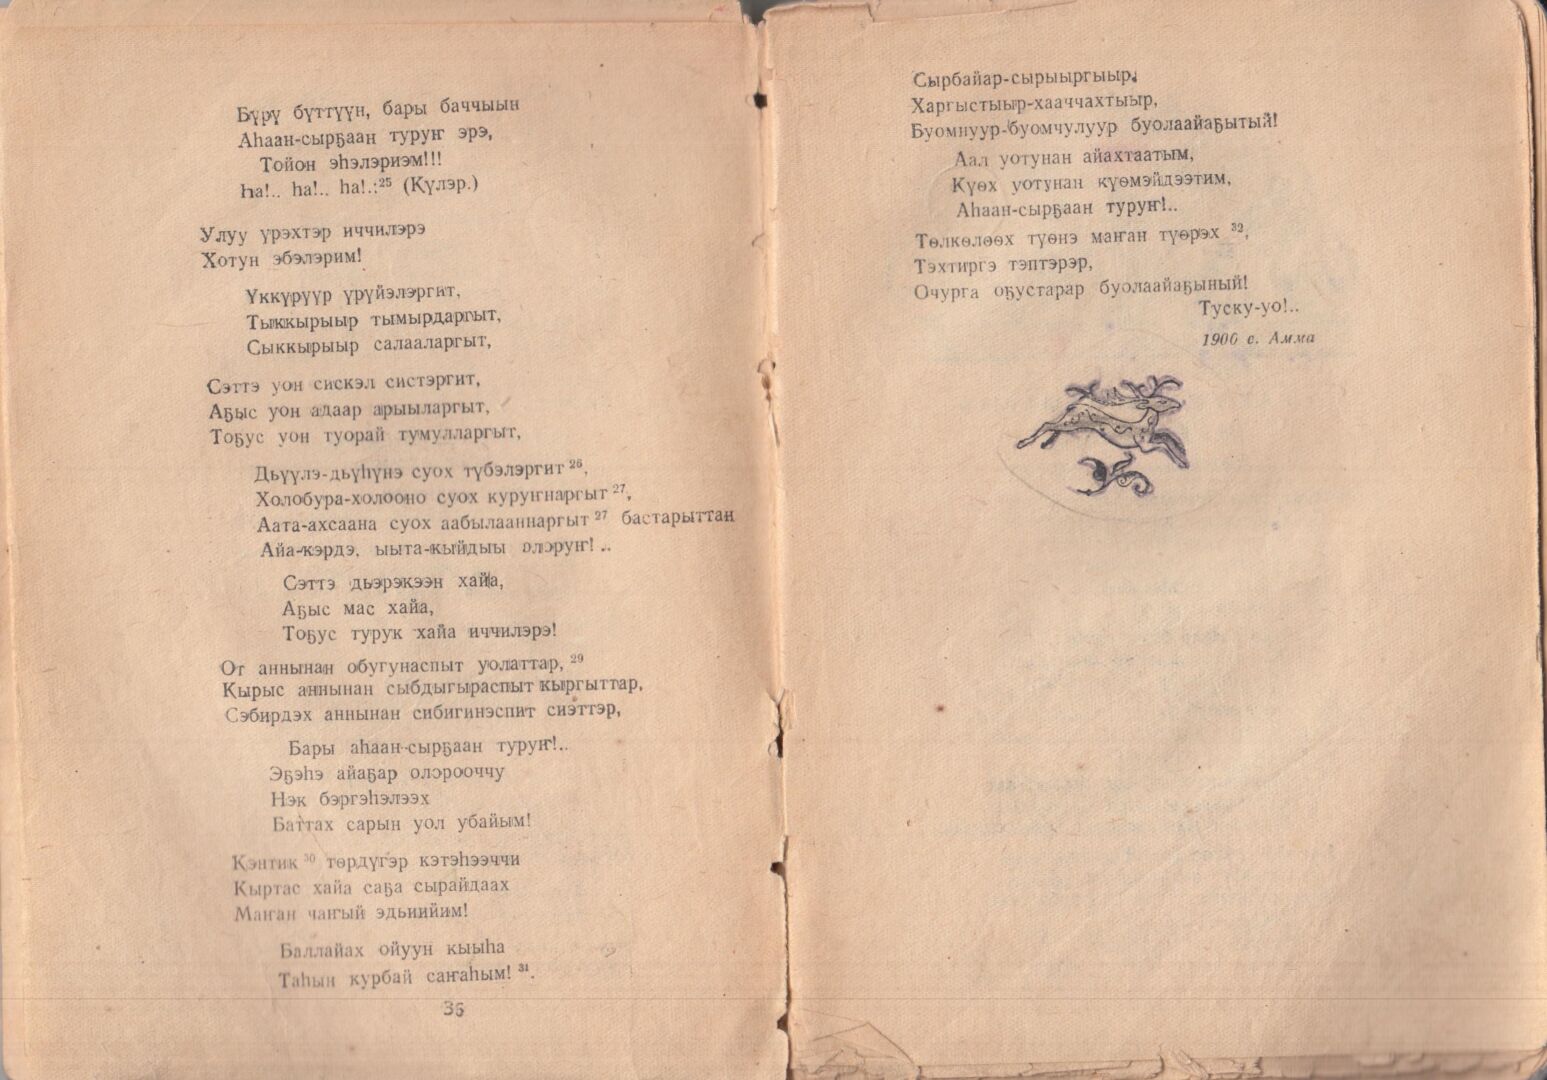 Бүрү бүттүүн, бары баччыын
Аһаан-сырҕаан туруҥ эрэ,
Тойон эһэлэриэм!!!
Һа!.. һа!.. һа!.:²⁵ (Күлэр.)
Улуу үрэхтэр иччилэрэ
Хотун эбэлэрим!
Үккүрүүр үрүйэлэргит,
Тыккырыыр тымырдаргыт,
Сыккырыыр салааларгыт,
Сэттэ уон сискэл систэргит,
Аҕыс уон адаар арыыларгыт,
Тоҕус уон туорай тумулларгыт,
Дьүүлэ-дьүһүнэ суох түбэлэргит²⁶,
Холобура-холооно суох куруҥнаргыт²⁷,
Аата-ахсаана суох аабылааннаргыт²⁷ бастарыттан
Айа-кэрдэ, ыыта-кыйдыы олоруҥ!..
Сэттэ дьэрэкээн хайа,
Аҕыс мас хайа,
Тоҕус турук хайа иччилэрэ!
От аннынан обугунаспыт уолаттар,²⁹
Кырыс аннынан сыбдыгыраспыт кыргыттар,
Сэбирдэх аннынан сибигинэспит сиэттэр,
Бары аһаан-сырҕаан туруҥ!..
Эҕэһэ айаҕар олорооччу
Нэк бэргэһэлээх
Баттах сарын уол убайым!
Кэнтик³⁰ төрдүгэр кэтэһээччи
Кыртас хайа саҕа сырайдаах
Маҥан чаҥый эдьиийим!
Баллайах ойуун кыыһа
Таһын курбай саҥаһым!³¹.
36
Сырбайар-сырыыргыыр,
Харгыстыыр-хааччахтыыр,
Буомнуур-буомчулуур буолаайаҕытый!
Аал уотунан айахтаатым,
Күөх уотунан күөмэйдээтим,
Аһаан-сырҕаан туруҥ!..
Төлкөлөөх түөнэ маҥан түөрэх³²,
Тэхтиргэ тэптэрэр,
Очурга оҕустарар буолаайаҕыный!
Туску-уо!..
1900 с. Амма